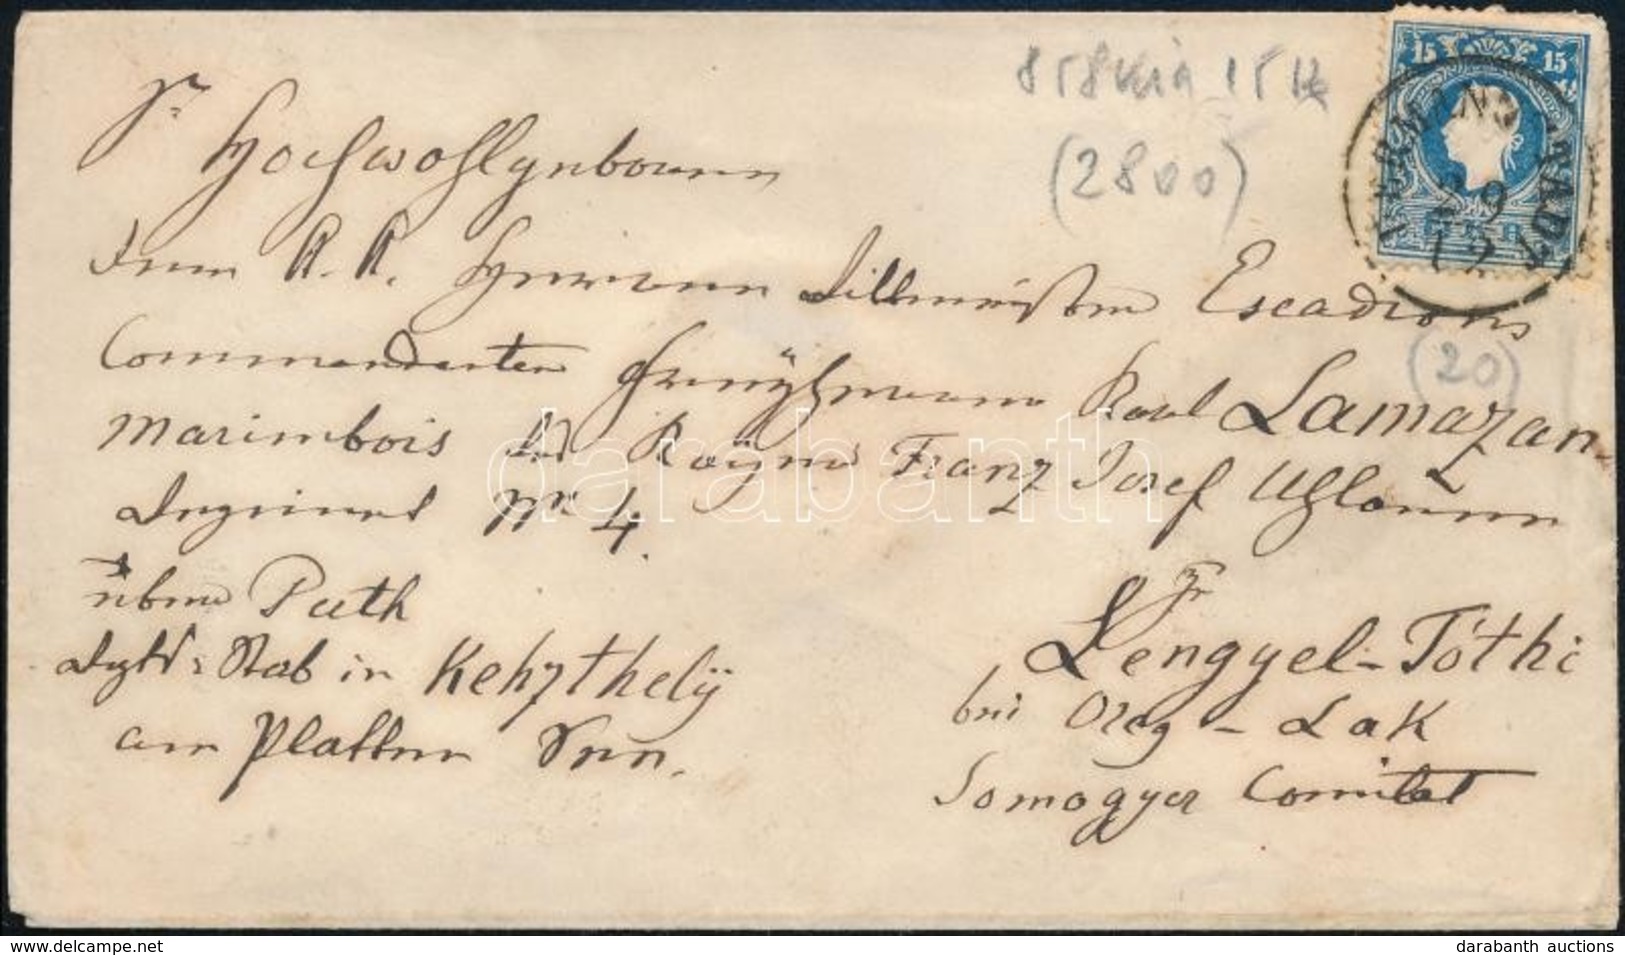 858 15
(2800)
15 15
HERMANNSTADT
29
12
(20)
Sr Hochwohlgeboren
Dem K. K. Herrn Rittmeister Escadrons
Commandanten Freyherrn Karl Lamazan-
Marimbois des Franz Josef Uhlanen
Regiment Nr 4.
über
Regts: Stab in Kehzthelÿ
am Platten See.
zu
Lengyel-Tóthi
bei Oreg-Lak
Somogyer Comitat
darabanth
www.delcampe.net
darabanth auctions